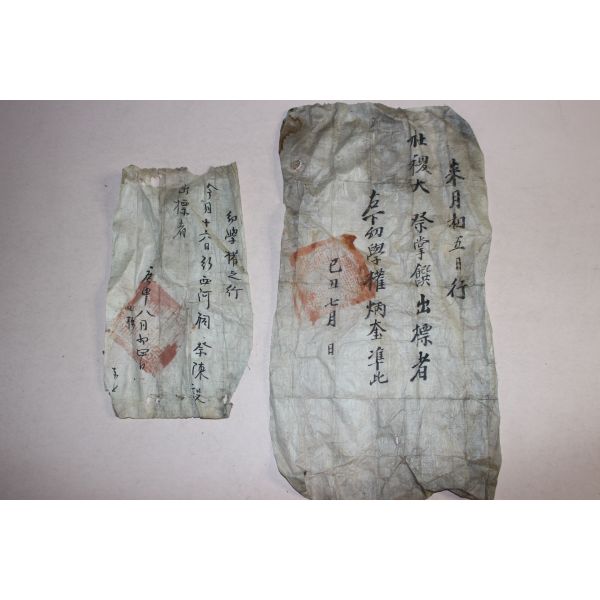 來月初五日行
社稷大 祭掌饌出標者
右下幼學權炳奎準此
己丑七月 日
幼學權之行
今月十六日行西河祠 祭陳設
出標者
庚申八月初四日